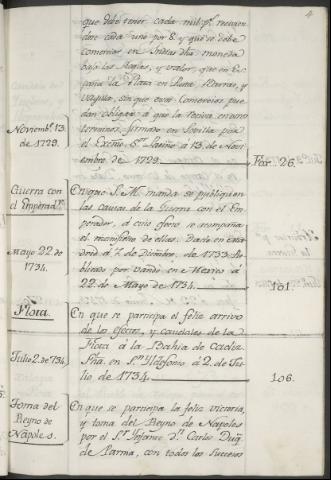 4
que debe tener cada
dose cada uno por 8. y que se debe
comerciar en Indias dha moneda
bajo las Reglas, y valor, que en Es-
paña la Plata en Pasta, Barras, y
Vajilla, sin que otros Comercios pue-
dan obligar á que la reciva en otro
terminos, firmado en Sevilla por
el Excmo. Sr. Patiño á 13. de Novi-
embre de 1729.
Noviemb.e 13.
de 1729.
Fox. 26.
Guerra con
el Emperad.r
En que S. M. manda se publiquen
las causas de la Guerra con el Em-
perador, á cuio efecto se acompaña
el manifiesto de ellas. Dada en
Madrid á 7. de Diciembre, de 1733. Pu-
blicado por vando en Mexico á
22. de Mayo de 1734.
Mayo 22. de
1734.
101.
Flota.
En que se participa el feliz arrivo
de los efectos, y caudales de la
Flota á la Bahia de Cadiz.
Fha. en Sn. Yldefonso á 2. de Ju-
lio de 1734.
Julio 2. de 734.
106.
Toma del
Reyno de
Napoles.
En que se participa la feliz victoria,
y toma del Reyno de Napoles
por el Sr. Infante Dn. Carlos Duq.
de Parma, con todos los sucesos